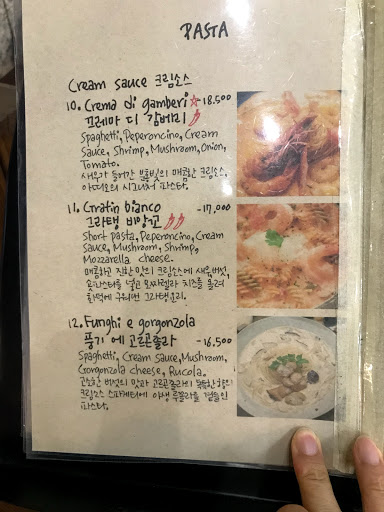 PASTA
Cream sauce 크림소스
10. Crema di gamberi ☆ -18.500
프레마 디 감베리
Spaghetti, Peperoncino, Cream
Sauce, Shrimp, Mushroom, Onion,
Tomato.
새우가 들어간 매콤한 크림소스,
시그니처 파스타.
11. Gratin bianco -17,000
그라탱 비앙코
Short pasta, Peperoncino, Cream
Sauce, Mushroom, Shrimp,
Mozzarella cheese.
매콤하고 진한 맛의 크림소스에 새우, 버섯,
숏파스타를 넣고 모짜렐라 치즈를 올려
화덕에 구워낸 그라탱요리.
12. Funghi e gorgonzola
풍기 에 고르곤졸라 -16,500
Spaghetti, Cream sauce, Mushroom,
Gorgonzola cheese, Rucola.
고소한 버섯의 맛과 고르곤졸라의 향의
크림소스 스파게티에 야생 루꼴라를 곁들인
파스타.